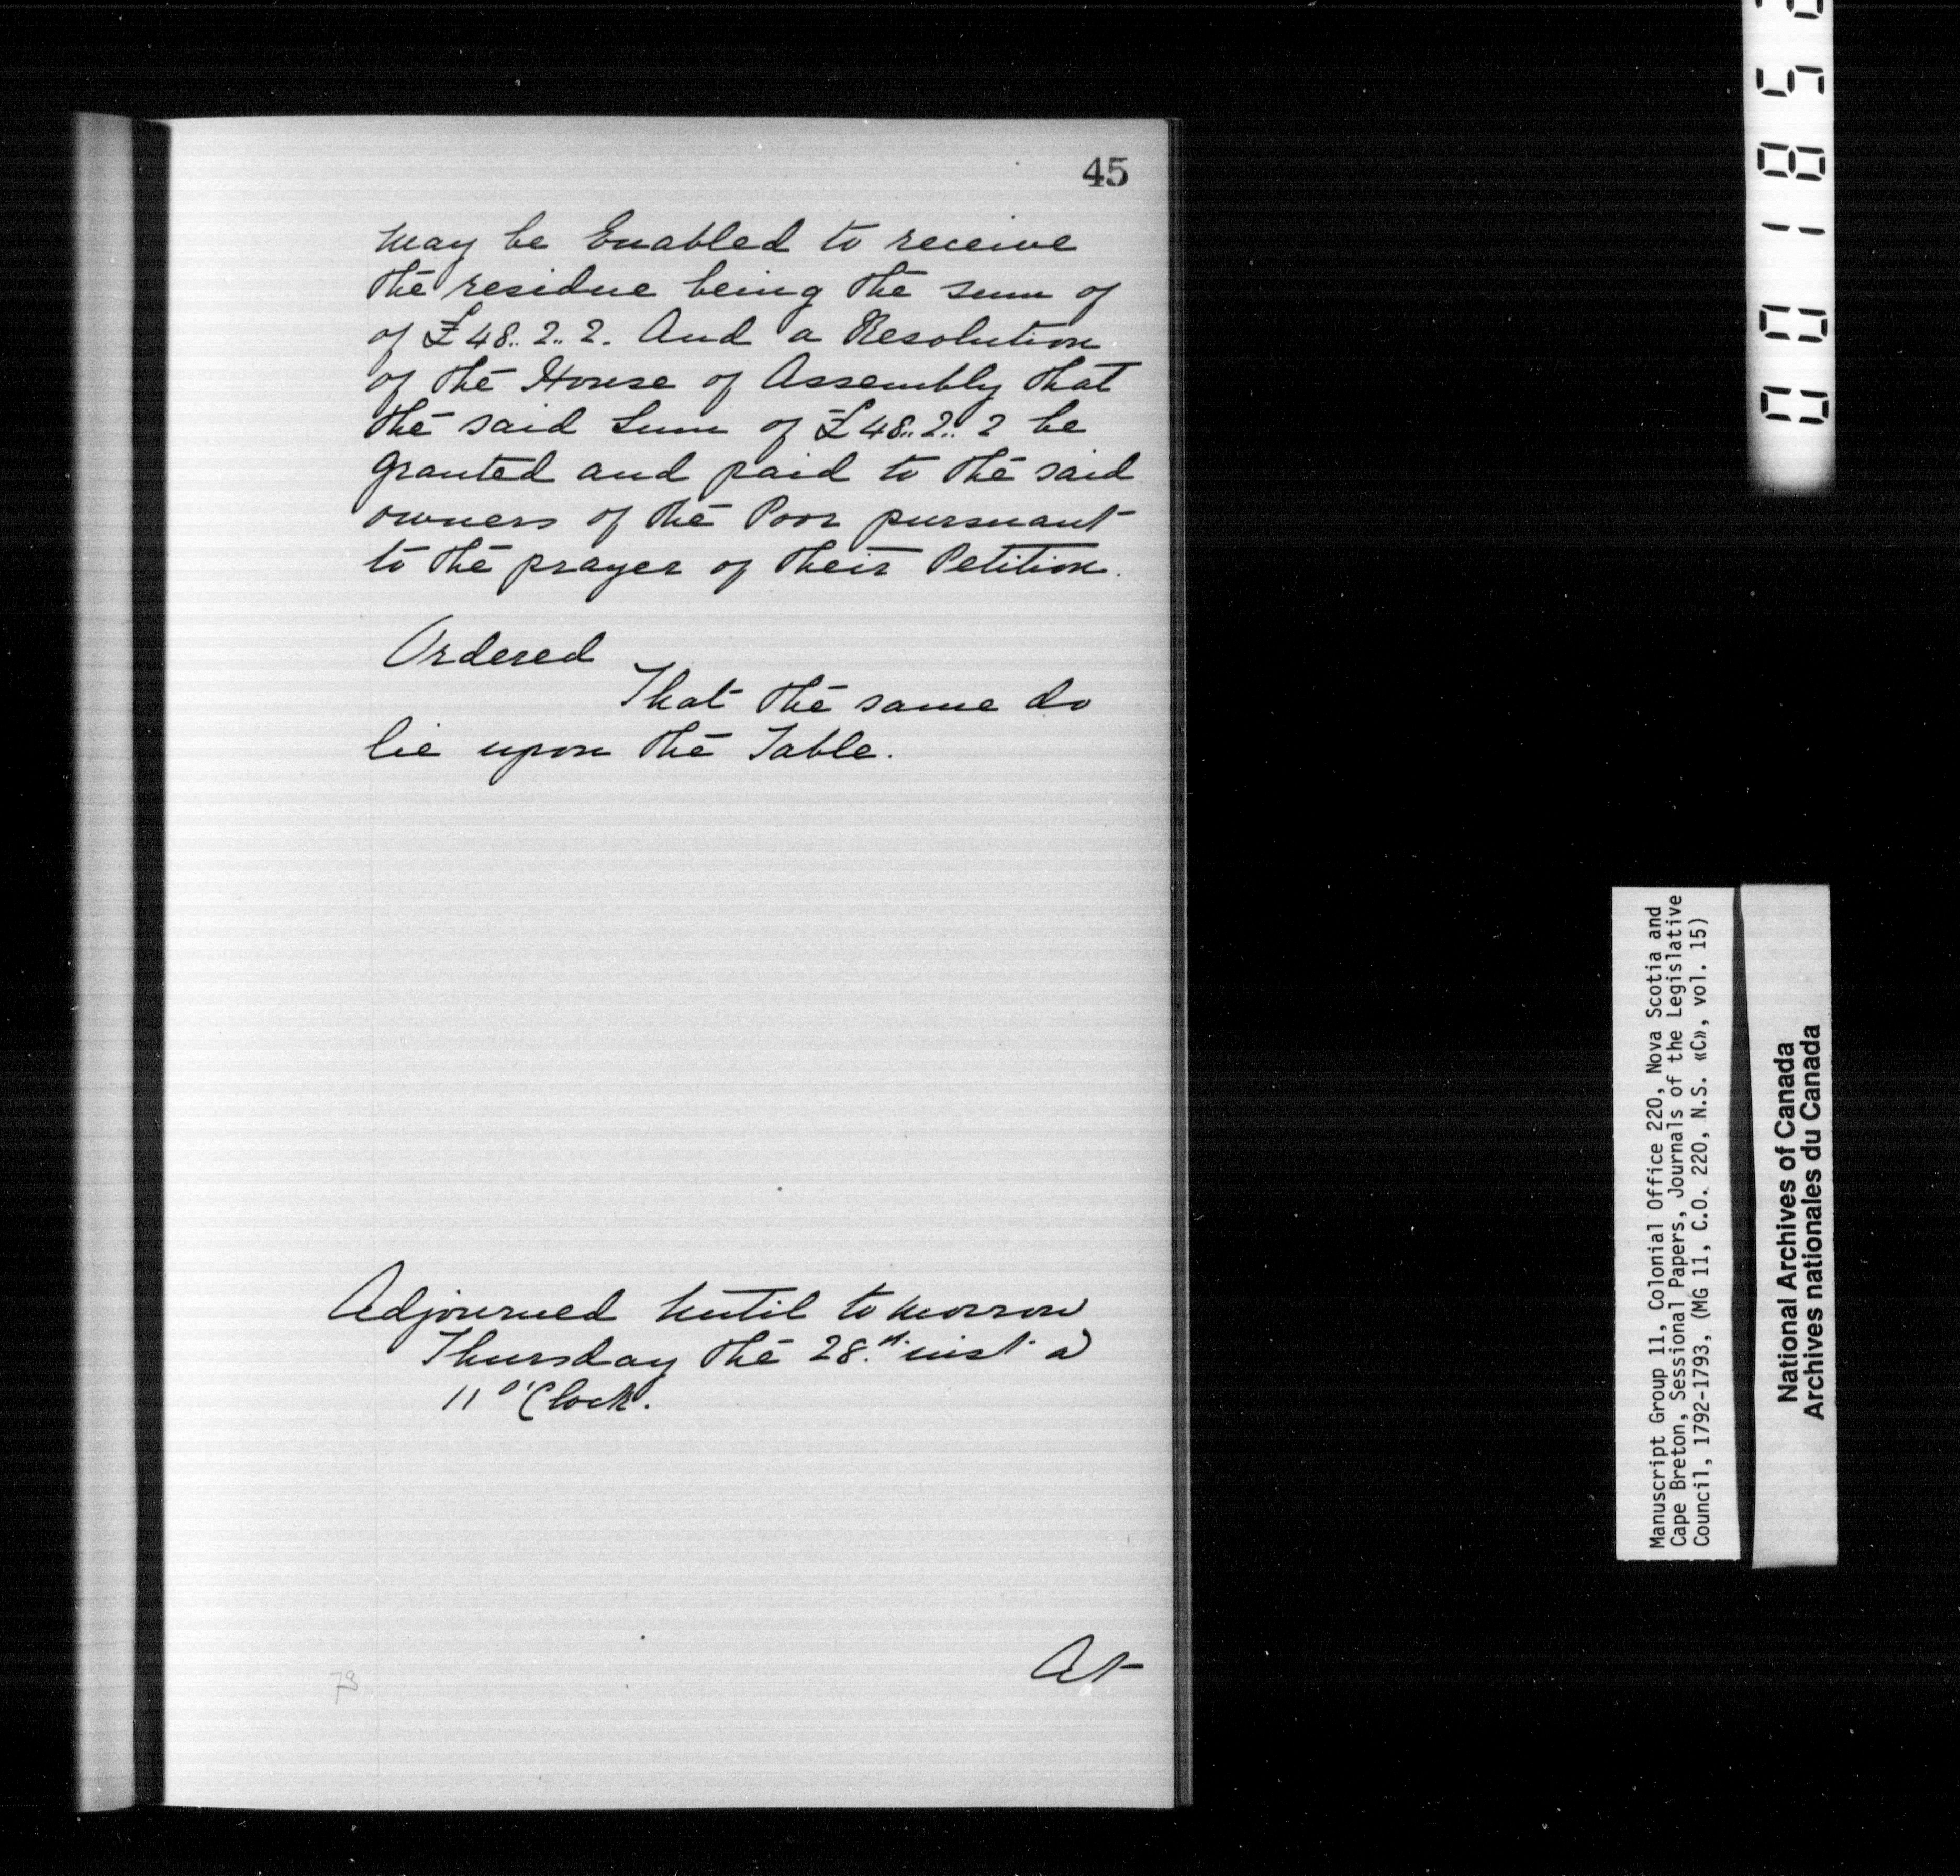 45
may be Enabled to receive
the residue being the sum of
of £48.. 2.. 2. And a Resolution
of the House of Assembly that
the said Sum of £48.. 2.. 2 be
granted and paid to the said
owners of the Poor pursuant
to the prayer of their Petition.
Ordered
That the same do
lie upon the Table.
Adjourned until to morrow
Thursday the 28.th inst a
11 o'Clock.
At
78
Manuscript Group 11, Colonial Office 220, Nova Scotia and
Cape Breton, Sessional Papers, Journals of the Legislative
Council, 1792-1793, (MG 11, C.O. 220, N.S. «C», vol. 15)
National Archives of Canada
Archives nationales du Canada